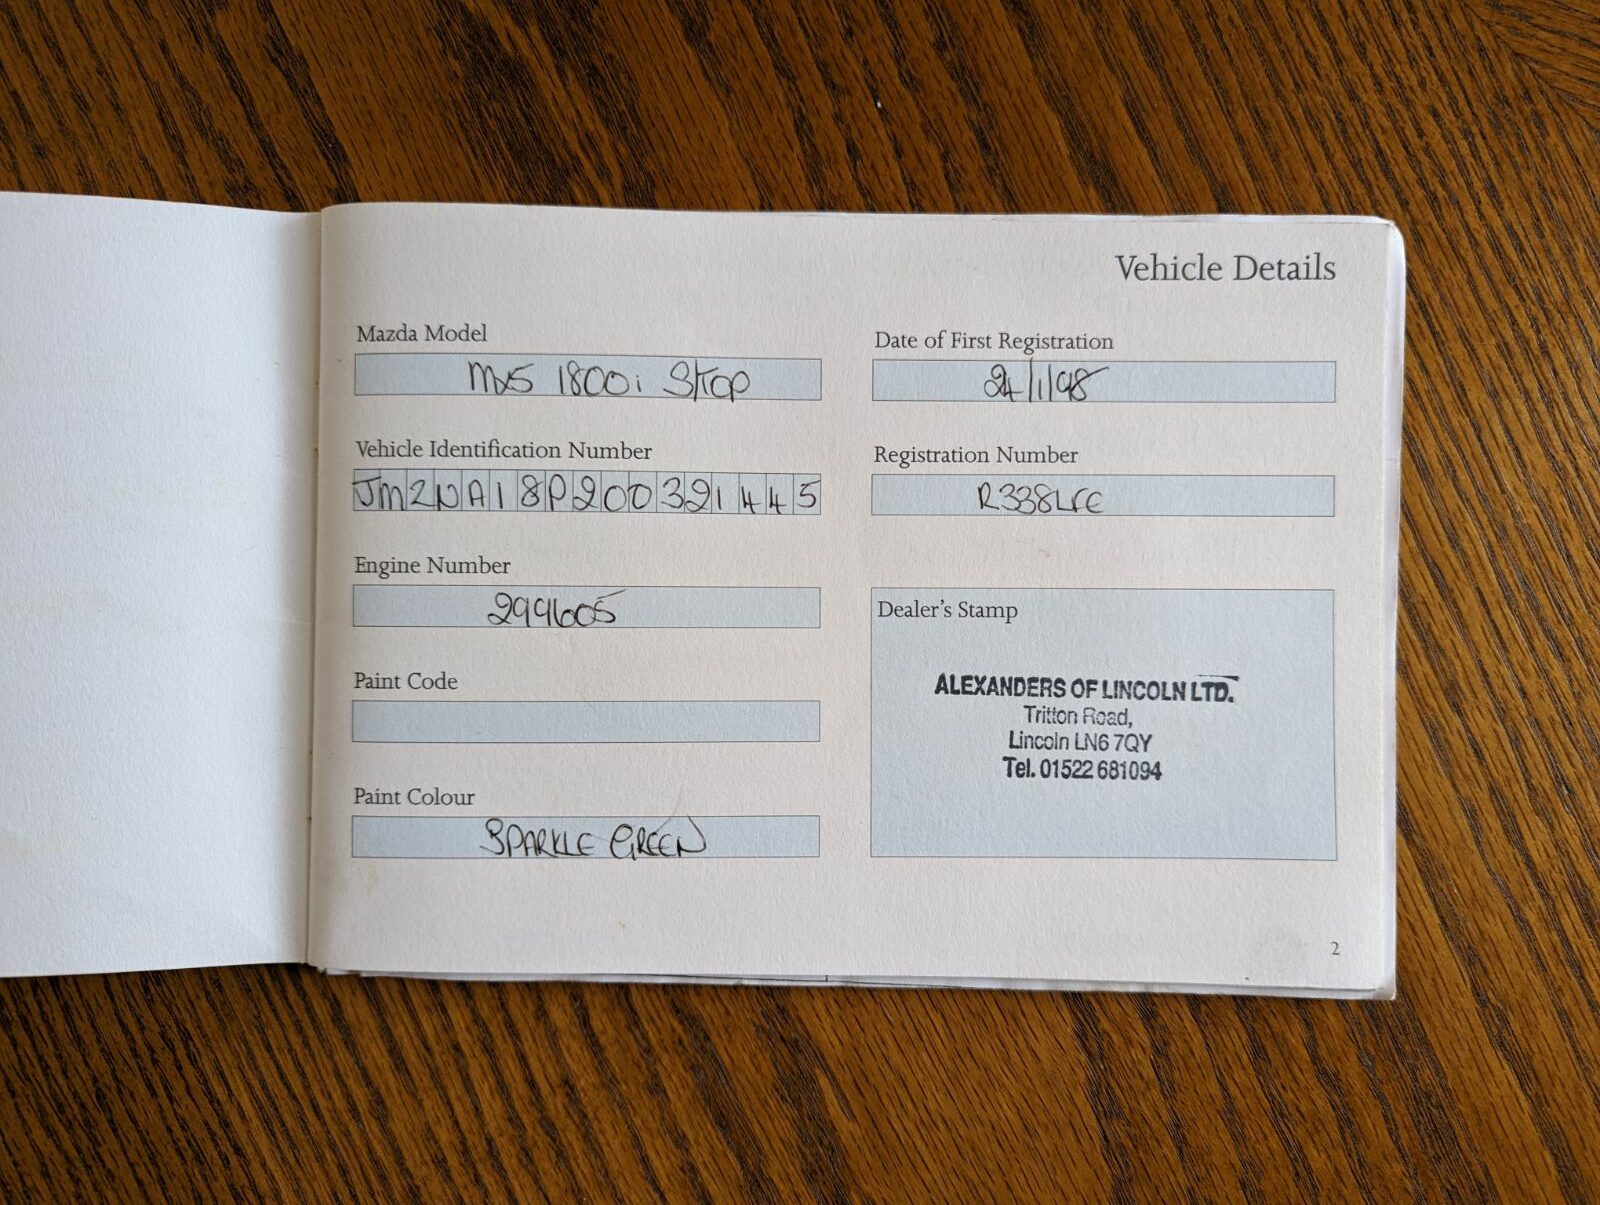 Vehicle Details
Mazda Model
Mx5 1800i S/TOP
Vehicle Identification Number
JMZNA18P200321445
Engine Number
299605
Paint Code
Paint Colour
SPARKLE GREEN
Date of First Registration
24/1/98
Registration Number
R338LFE
Dealer's Stamp
ALEXANDERS OF LINCOLN LTD.
Tritton Road,
Lincoln LN6 7QY
Tel. 01522 681094
2